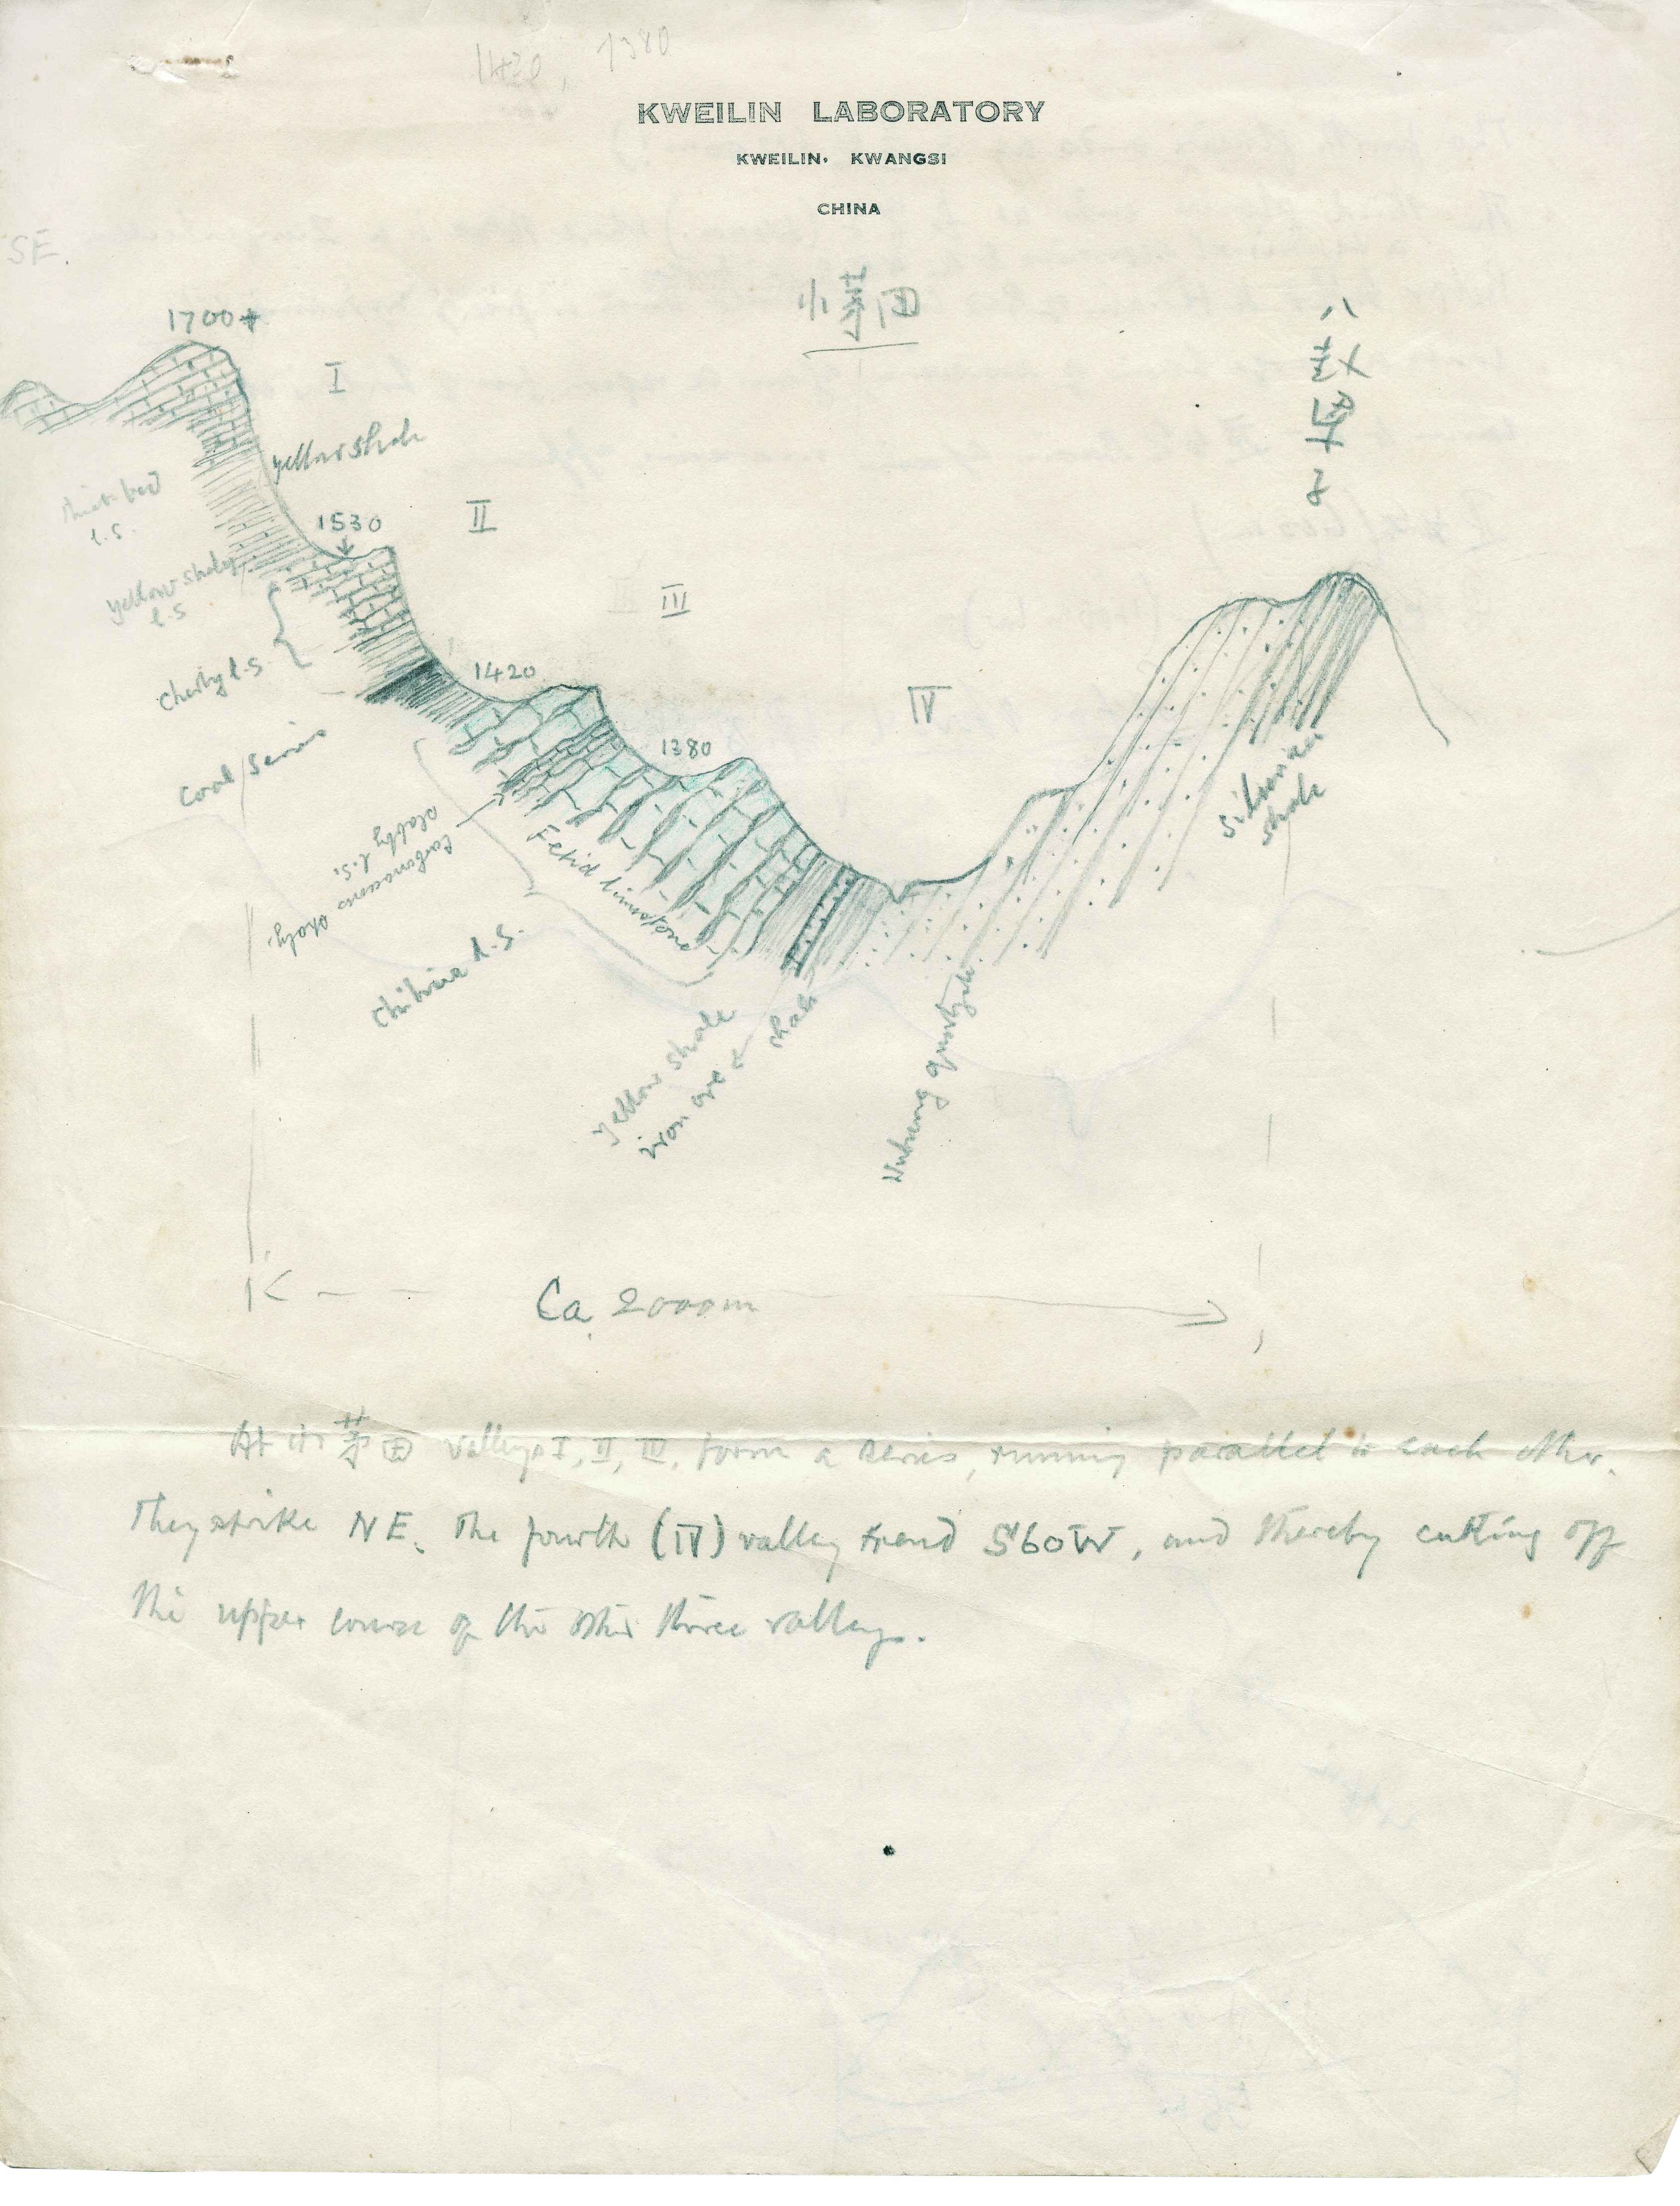 1420, 1380
KWEILIN LABORATORY
KWEILIN, KWANGSI
CHINA
SE.
小茅田
八
子
1700+
I
yellow shale
thick bed
l.s.
1530
II
yellow shaley
l.s
III
cherty l.s.
1420
IV
Coal Series
1380
Silurian
shale
Carbonaceous
slabby l.s.
Fetid limestone
Chihsia l.s.
yellow shale
iron ore
shale
Wutung quartzyte
Ca. 2000m
At 小茅田 valleys I, II, III, form a series, running parallel to each other.
They strike NE. The fourth (IV) valley trend S60W, and thereby cutting off
the upper course of the other three valleys.